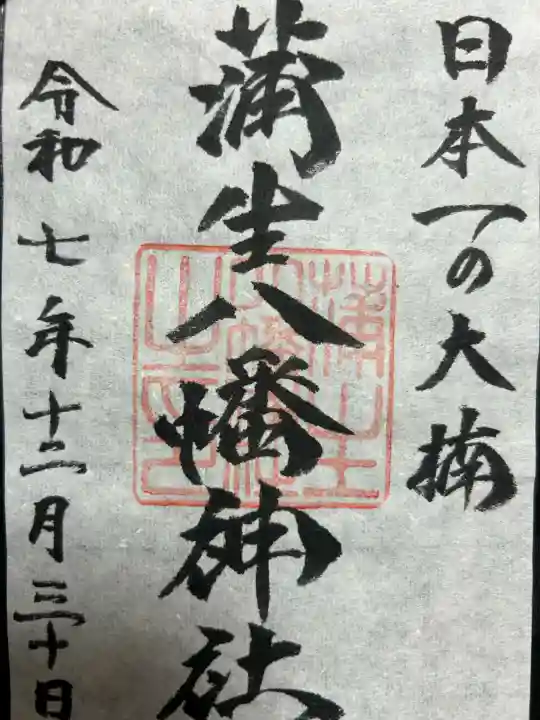 日本一の大楠
蒲生八幡神社
蒲生八幡神社之印
令和七年十二月三十日